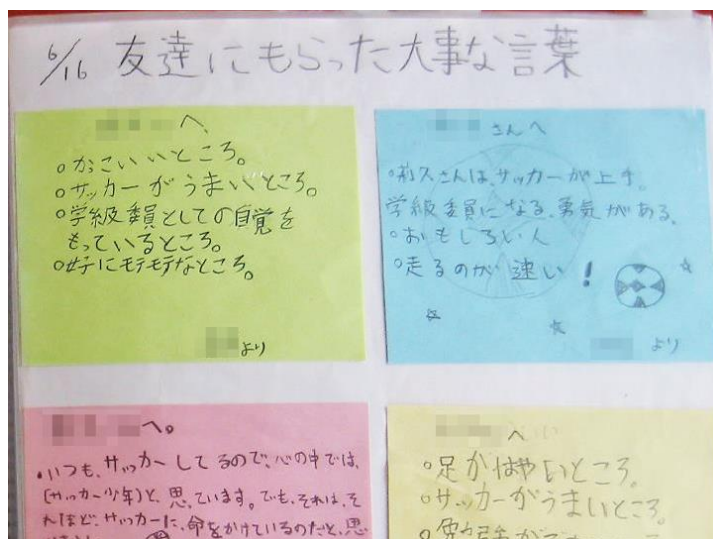 6/16 友達にもらった大事な言葉
へ、
。かっこいいところ。
。サッカーがうまいところ。
。学級委員としての自覚を
もっているところ。
。女子にモテモテなところ。
より
さんへ
。さんは、サッカーが上手。
学級委員になる、勇気がある。
。おもしろい人
。走るのが速い!
より
へ。
・いつも、サッカーしてるので、心の中では、
(サッカー少年)と、思っています。でも、それは、そ
れほど、サッカーに、命をかけているのだと、思
へ
。足がはやいところ。
。サッカーがうまいところ。